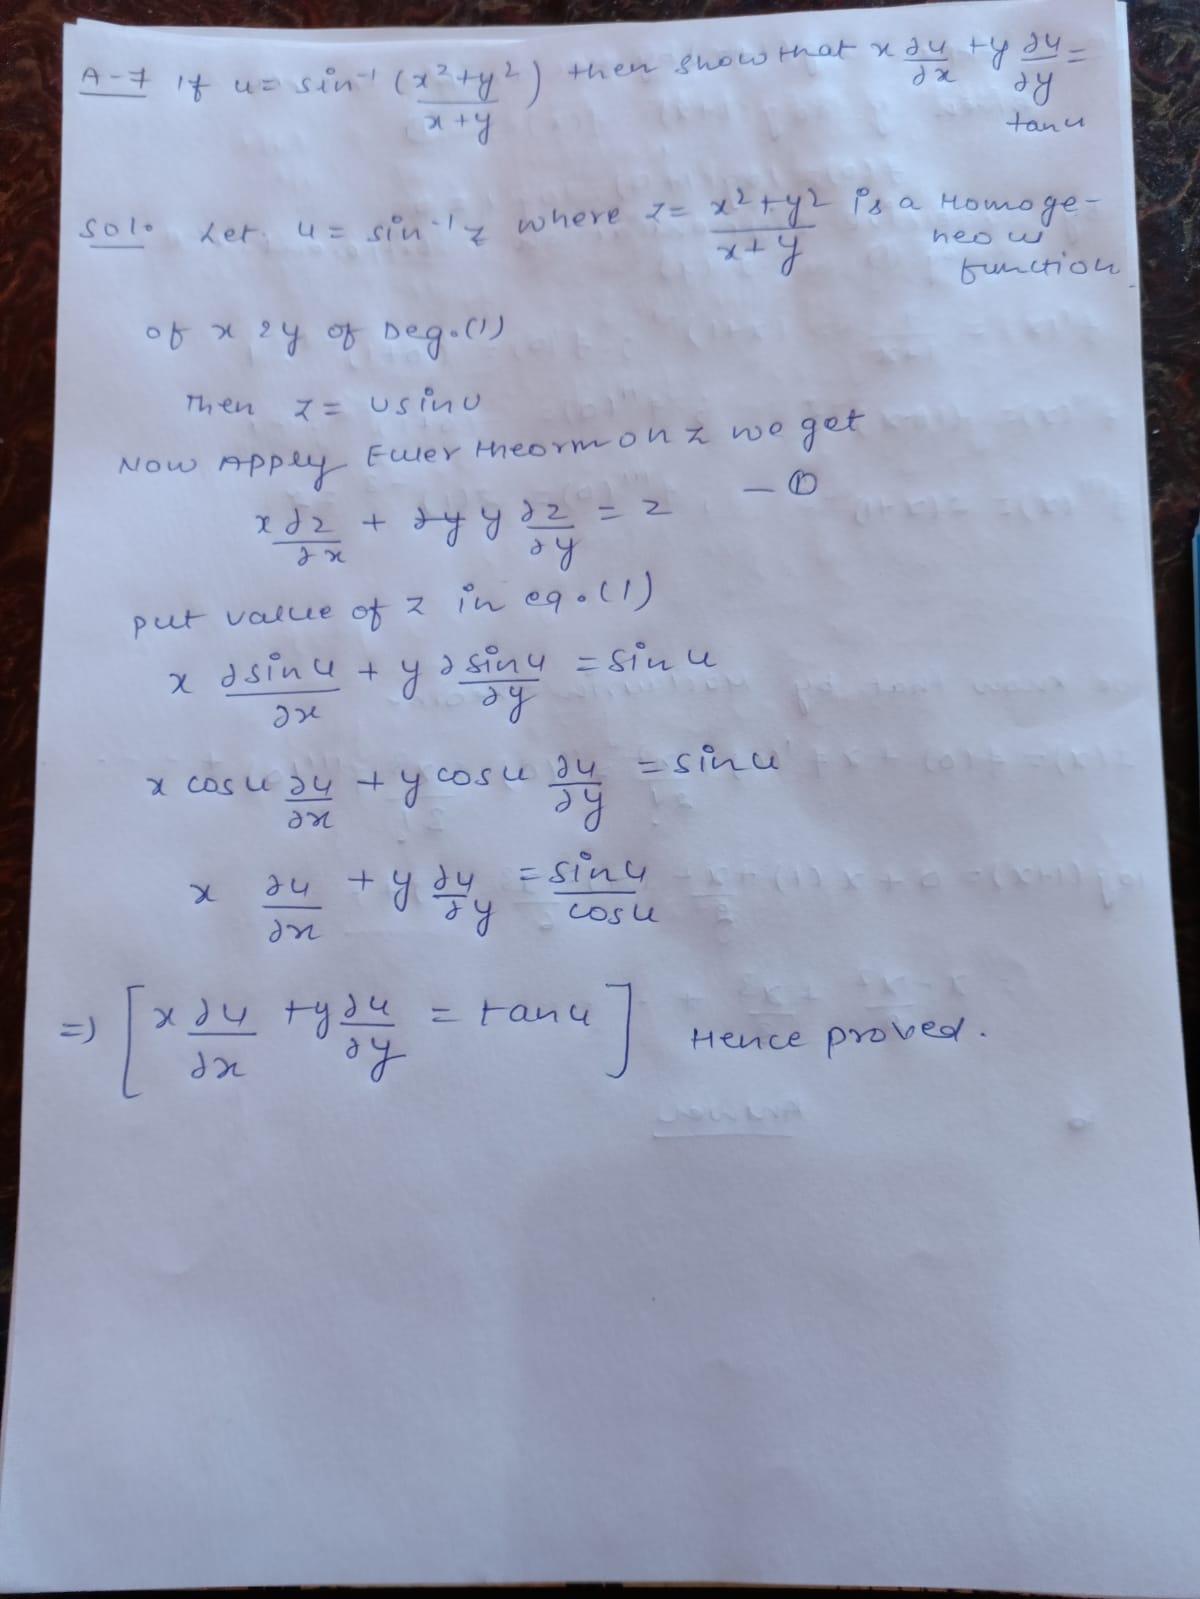 A-7 If u = sin⁻¹ (x²+y²/x+y) then show that x ∂u/∂x + y ∂u/∂y =
tan u
Sol. Let. u = sin⁻¹z where z = x²+y²/x+y is a Homoge-
neous
function
of x & y of Deg.(1)
Then z = usinu
Now Apply Euler theorm on z we get
x ∂z/∂x + ∂y y ∂z/∂y = z — ①
put value of z in eq.(1)
x ∂sinu/∂x + y ∂sinu/∂y = sinu
x cosu ∂u/∂x + y cosu ∂u/∂y = sinu
x ∂u/∂x + y ∂y/∂y = sinu/cosu
=) [x ∂u/∂x + y ∂u/∂y = tanu] Hence proved.